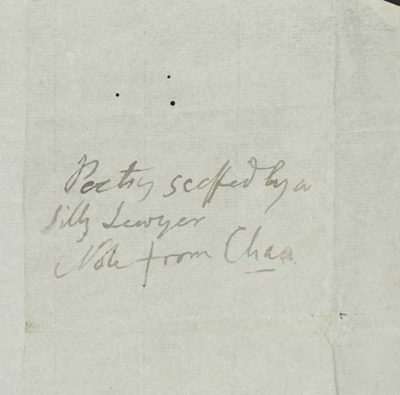 Poetry scoffed by a
silly Lawyer
Note from Chaa